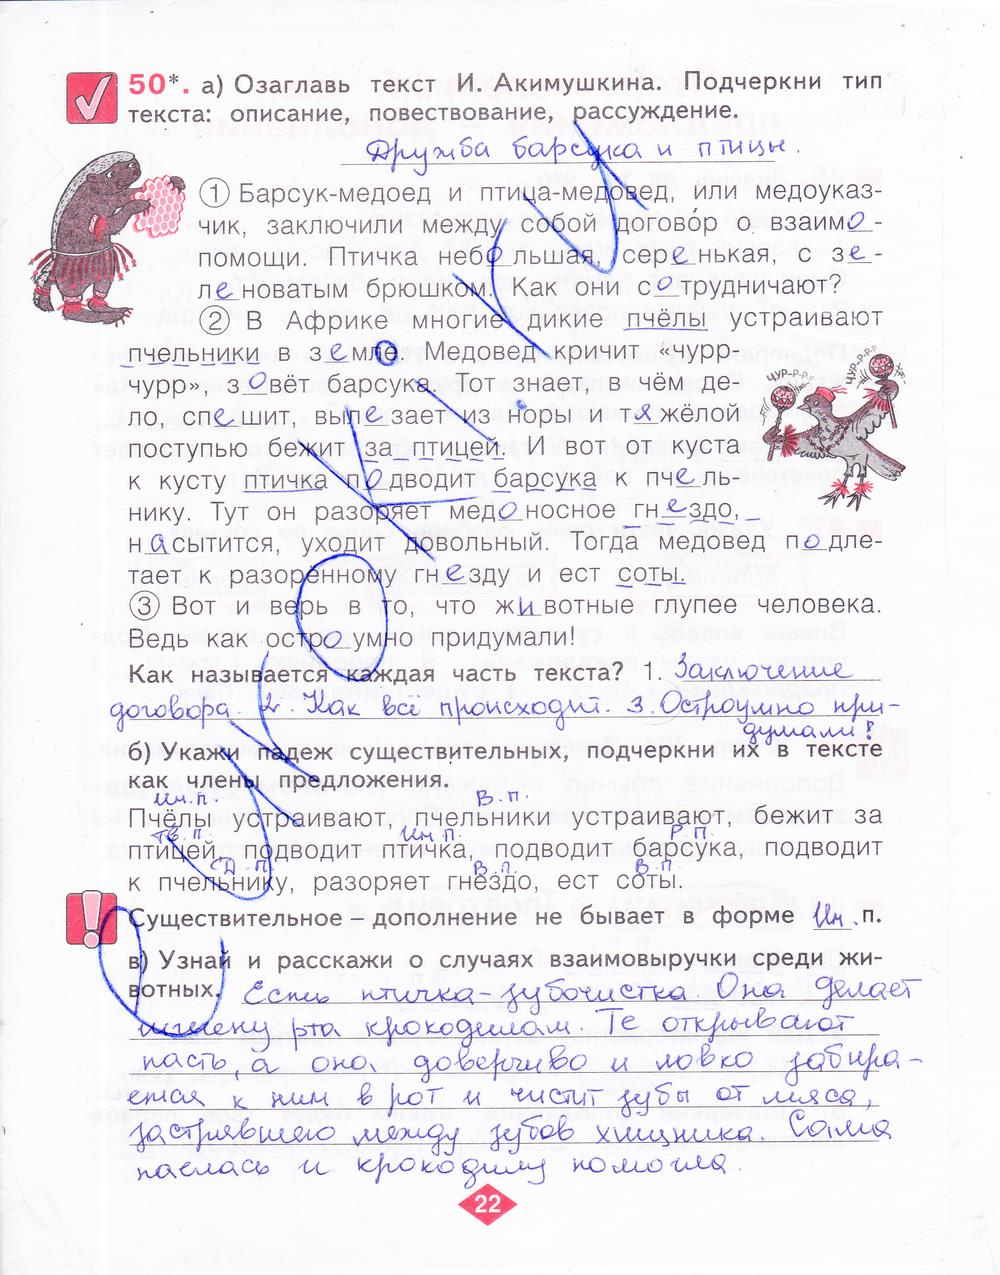 50*. а) Озаглавь текст И. Акимушкина. Подчеркни тип
текста: описание, повествование, рассуждение.
Дружба барсука и птицы.
① Барсук-медоед и птица-медовед, или медоуказ-
чик, заключили между собой догово́р о взаимо-
помощи. Птичка небольшая, серенькая, с зе-
леноватым брюшком. Как они сотрудничают?
② В Африке многие дикие пчёлы устраивают
пчельники в земле. Медовед кричит «чурр-
чурр», зовёт барсука. Тот знает, в чём де-
ло, спешит, вылезает из норы и тяжёлой
поступью бежит за птицей. И вот от куста
к кусту птичка подводит барсука к пчель-
нику. Тут он разоряет медоносное гнездо,
насытится, уходит довольный. Тогда медовед подле-
тает к разорённому гнезду и ест соты.
③ Вот и верь в то, что животные глупее человека.
Ведь как остроумно придумали!
ЧУР-Р-Р-Р
ЧУР-Р-Р-Р
Как называется каждая часть текста? 1. Заключение
договора. 2. Как всё происходит. 3. Остроумно при-
думали!
б) Укажи падеж существительных, подчеркни их в тексте
как члены предложения.
Им.п. В.п.
Пчёлы устраивают, пчельники устраивают, бежит за
Тв.п. Им.п. Р.п.
птицей, подводит птичка, подводит барсука, подводит
Д.п. В.п. В.п.
к пчельнику, разоряет гнездо, ест соты.
Существительное – дополнение не бывает в форме Им.п.
в) Узнай и расскажи о случаях взаимовыручки среди жи-
вотных. Есть птичка-зубочистка. Она делает
гигиену рта крокодилам. Те открывают
пасть, а она доверчиво и ловко забира-
ется к ним в рот и чистит зубы от мяса,
застрявшего между зубов хищника. Сама
наелась и крокодилу помогла.
22